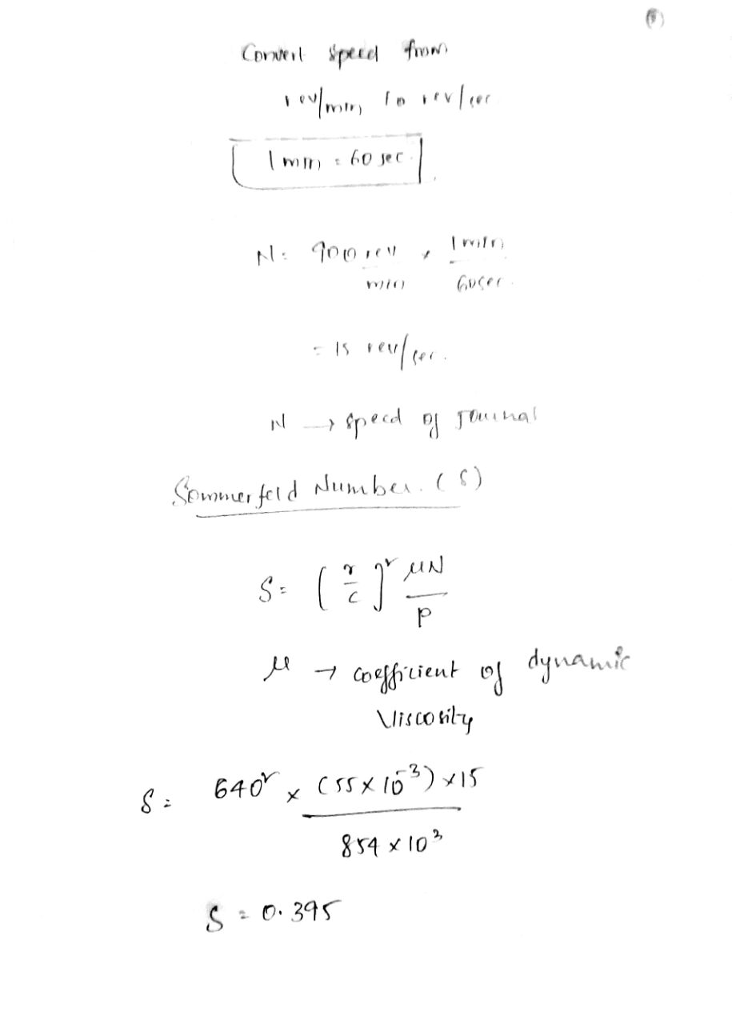 Convert speed from
rev/min to rev/sec
1 min = 60 sec.
N = 900 rev × 1 min
min 60 sec.
= 15 rev/sec.
N → speed of Journal
Sommerfeld Number. (S)
S = (r/c)² μN
P
μ → coefficient of dynamic
Viscosity
S = 640² × (55 × 10⁻³) × 15
854 × 10³
S = 0.395